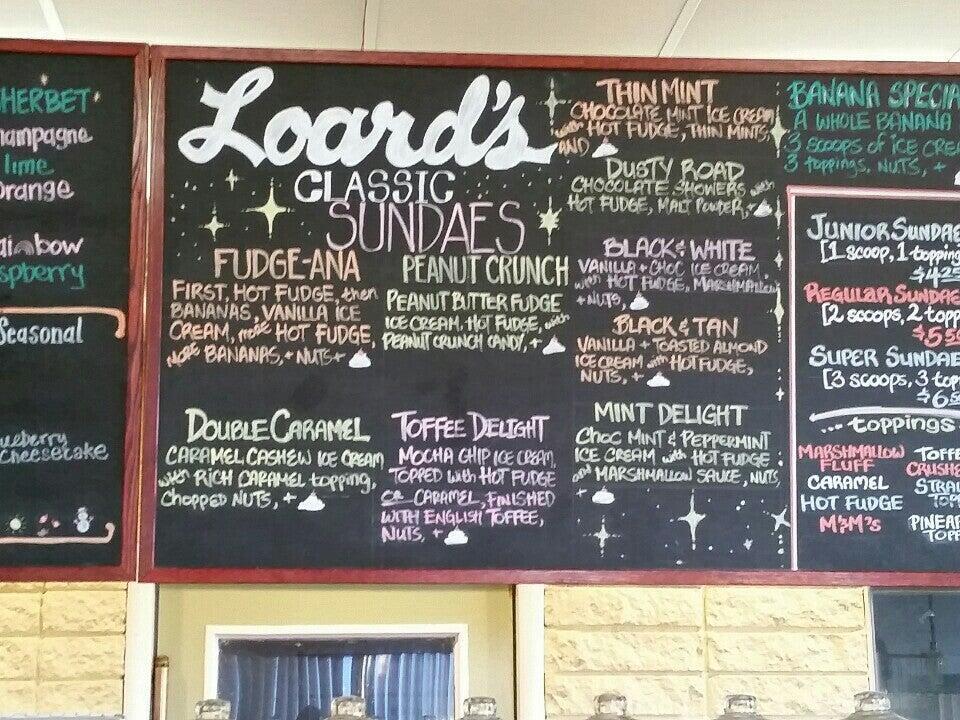 HERBET
hampagne
lime
orange
ai bow
spberry
Seasonal
ueberry
cheesecake
Loard's
CLASSIC
SUNDAES
FUDGE-ANA
FIRST, HOT FUDGE, then
BANANAS, VANILLA ICE
CREAM, more HOT FUDGE,
more BANANAS, + NUTS +
PEANUT CRUNCH
PEANUT BUTTER FUDGE
ICE CREAM, HOT FUDGE, with
PEANUT CRUNCH CANDY, +
DOUBLE CARAMEL
CARAMEL CASHEW ICE CREAM
with RICH CARAMEL topping,
Chopped NUTS, +
TOFFEE DELIGHT
MOCHA CHIP ICE CREAM,
TOPPED with HOT FUDGE
or CARAMEL, FINISHED
WITH ENGLISH TOFFEE,
NUTS, +
THIN MINT
CHOCOLATE MINT ICE CREAM
with HOT FUDGE, THIN MINTS,
AND
DUSTY ROAD
CHOCOLATE SHOWERS with
HOT FUDGE, MALT POWDER, +
BLACK & WHITE
VANILLA + CHOC ICE CREAM
with HOT FUDGE, MARSHMALLOW
+ NUTS,
BLACK & TAN
VANILLA + TOASTED ALMOND
ICE CREAM with HOT FUDGE,
NUTS, +
MINT DELIGHT
CHOC MINT & PEPPERMINT
ICE CREAM with HOT FUDGE
and MARSHMALLOW SAUCE, NUTS,
+
BANANA SPECIA
A WHOLE BANANA
3 SCOOPS of ICE CREA
3 toppings, NUTS, +
JUNIOR SUNDAE
[1 scoop, 1 topping
$4.25
REGULAR SUNDAE
[2 scoops, 2 topp
$5.5
SUPER SUNDAE
[3 scoops, 3 top
$6.5
... toppings
MARSHMALLOW
FLUFF
CARAMEL
HOT FUDGE
M&M's
TOFFE
CRUSHE
STRAW
TOPP
PINEAP
TOPP